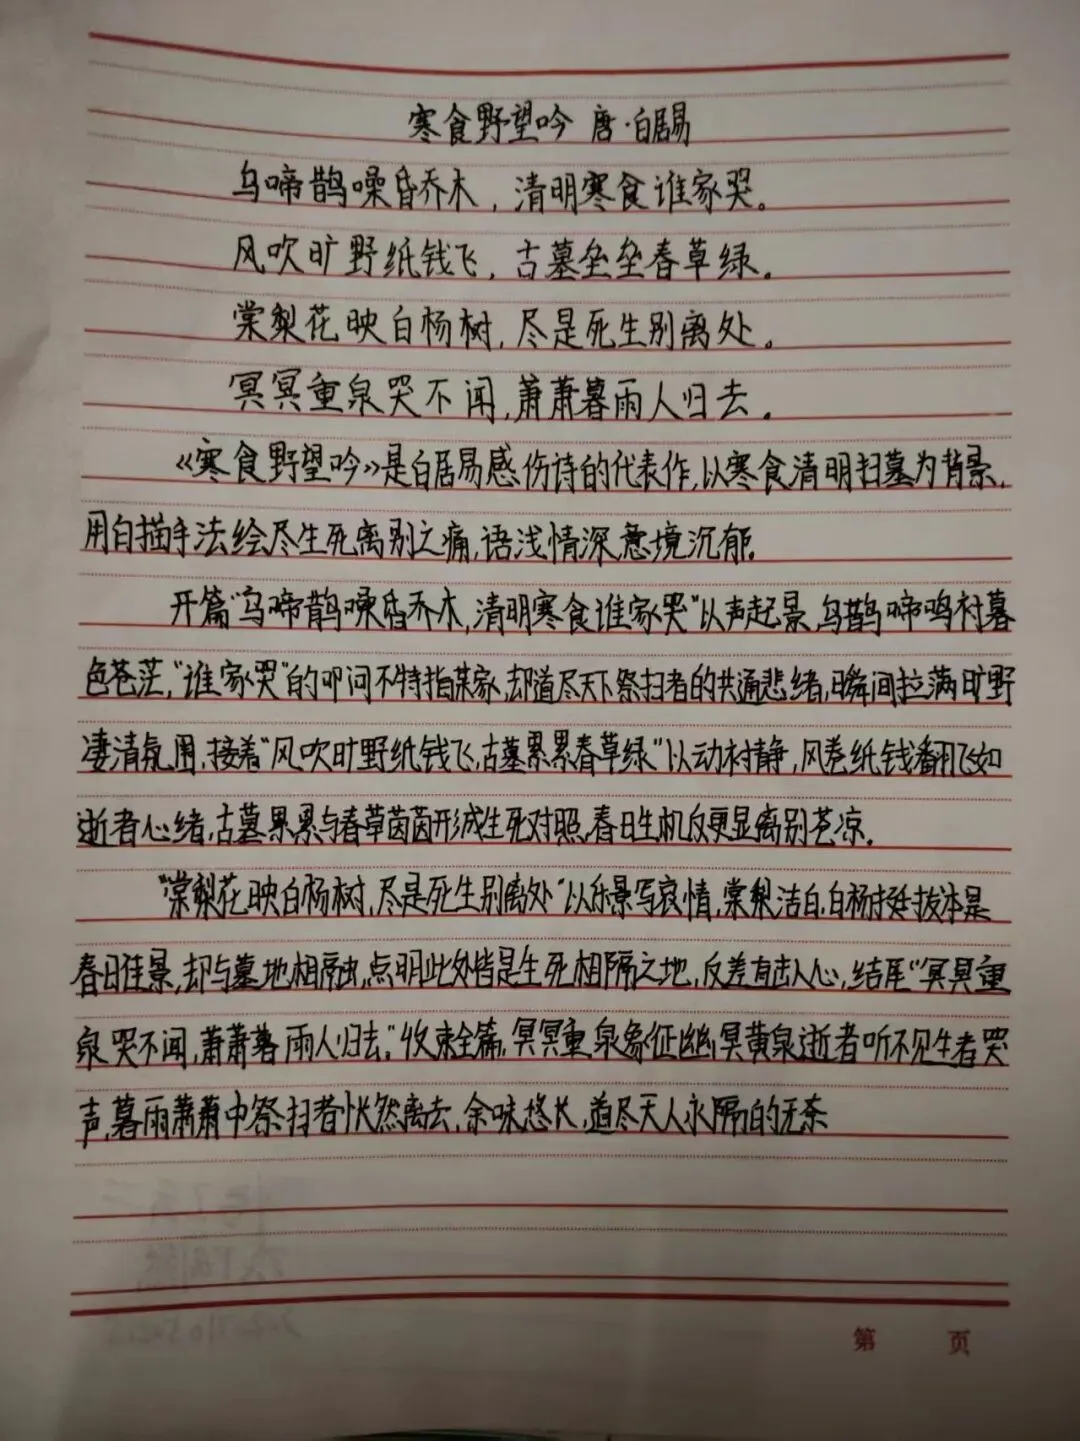 寒食野望吟 唐·白居易
乌啼鹊噪昏乔木，清明寒食谁家哭。
风吹旷野纸钱飞，古墓垒垒春草绿。
棠梨花映白杨树，尽是死生别离处。
冥冥重泉哭不闻，萧萧暮雨人归去。
《寒食野望吟》是白居易感伤诗的代表作，以寒食清明扫墓为背景，
用白描手法绘尽生死离别之痛，语浅情深意境沉郁。
开篇“乌啼鹊噪昏乔木，清明寒食谁家哭”以声起景，乌鹊啼鸣衬暮
色苍茫，“谁家哭”的叩问不特指某家，却道尽天下祭扫者的共通悲绪，瞬间拉满旷野
凄清氛围，接着“风吹旷野纸钱飞，古墓累累春草绿”以动衬静，风卷纸钱翻飞如
逝者心绪，古墓累累与春草茵茵形成生死对照，春日生机反更显离别苍凉。
“棠梨花映白杨树，尽是死生别离处”以乐景写哀情，棠梨洁白，白杨挺拔本是
春日佳景，却与墓地相融，点明此处皆是生死相隔之地，反差直击人心，结尾“冥冥重
泉哭不闻，萧萧暮雨人归去。”收束全篇，冥冥重泉象征幽冥黄泉逝者听不见生者哭
声，暮雨萧萧中祭扫者怅然离去，余味悠长，道尽天人永隔的无奈
第 页